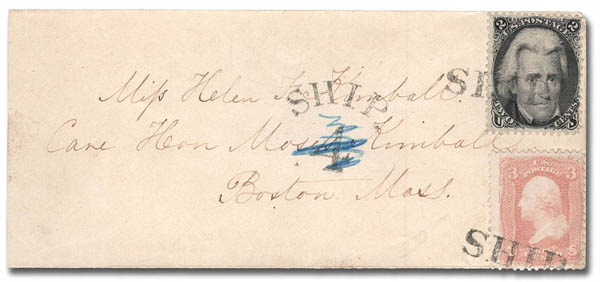 Miss Helen F. Kimball.
Care Hon Moses Kimball
Boston Mass.
SHIP
4
SHIP
2 2
U.S. POSTAGE
TWO CENTS
U S
3 3
U.S. POSTAGE
SHIP